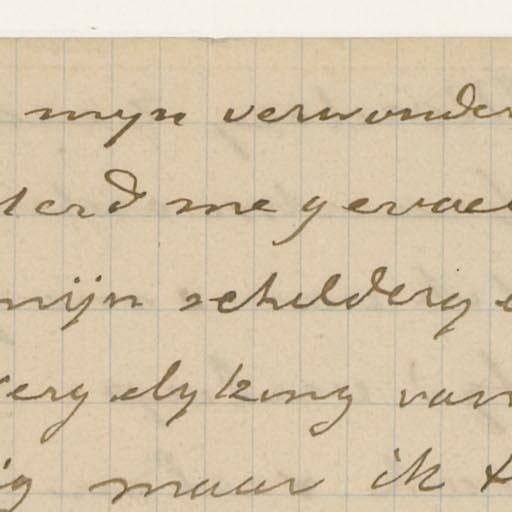 mijn verwonder
werd me gevoel
mijn schilderij e
vergelyking van
ig maar ik